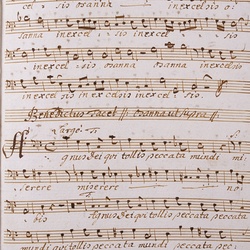 cel sis osanna in excel sis o
sanna in excel sis o
in excel sis osanna in excelsis
in excelsis in excelsis in excel sis.
Benedictus Tacet // Osanna ut supra //
Largo
Agnus dei qui tollis peccata mundi mi
serere miserere no
bis Agnus dei qui tollis peccata peccata
mundi qui tollis peccata mundi peccata pec